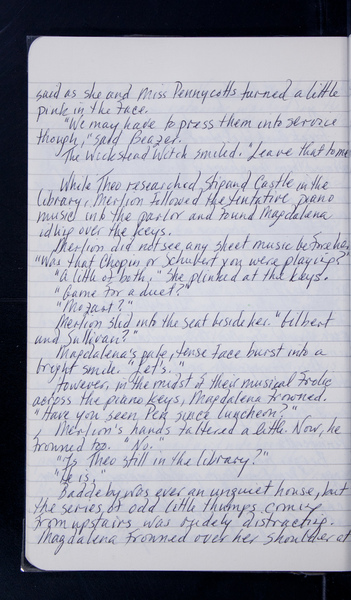 said as she and Miss Pennycotts turned a little
pink in the face.
"We may have to press them into service
though," said Beazer.
The Wickstead Witch smiled. "Leave that to me
While Theo researched Stipand Castle in the
library, Merlion followed the tentative piano
music into the parlor and found Magdalena
idling over the keys.
Merlion did not see any sheet music before her.
"Was that Chopin or Schubert you were playing?"
"A little of both." She plinked at the keys.
"Game for a duet?"
"Mozart?"
Merlion slid into the seat beside her. "Gilbert
and Sullivan?"
Magdalena's pale, tense face burst into a
bright smile. "Let's."
However, in the midst of their musical frolic
across the piano keys, Magdalena frowned.
"Have you seen Pen since luncheon?"
Merlion's hands faltered a little. Now, he
frowned too. "No."
"Is Theo still in the library?"
"He is."
Baddeby was ever an unquiet house, but
the series of odd little thumps coming
from upstairs was rudely distracting.
Magdalena frowned over her shoulder at